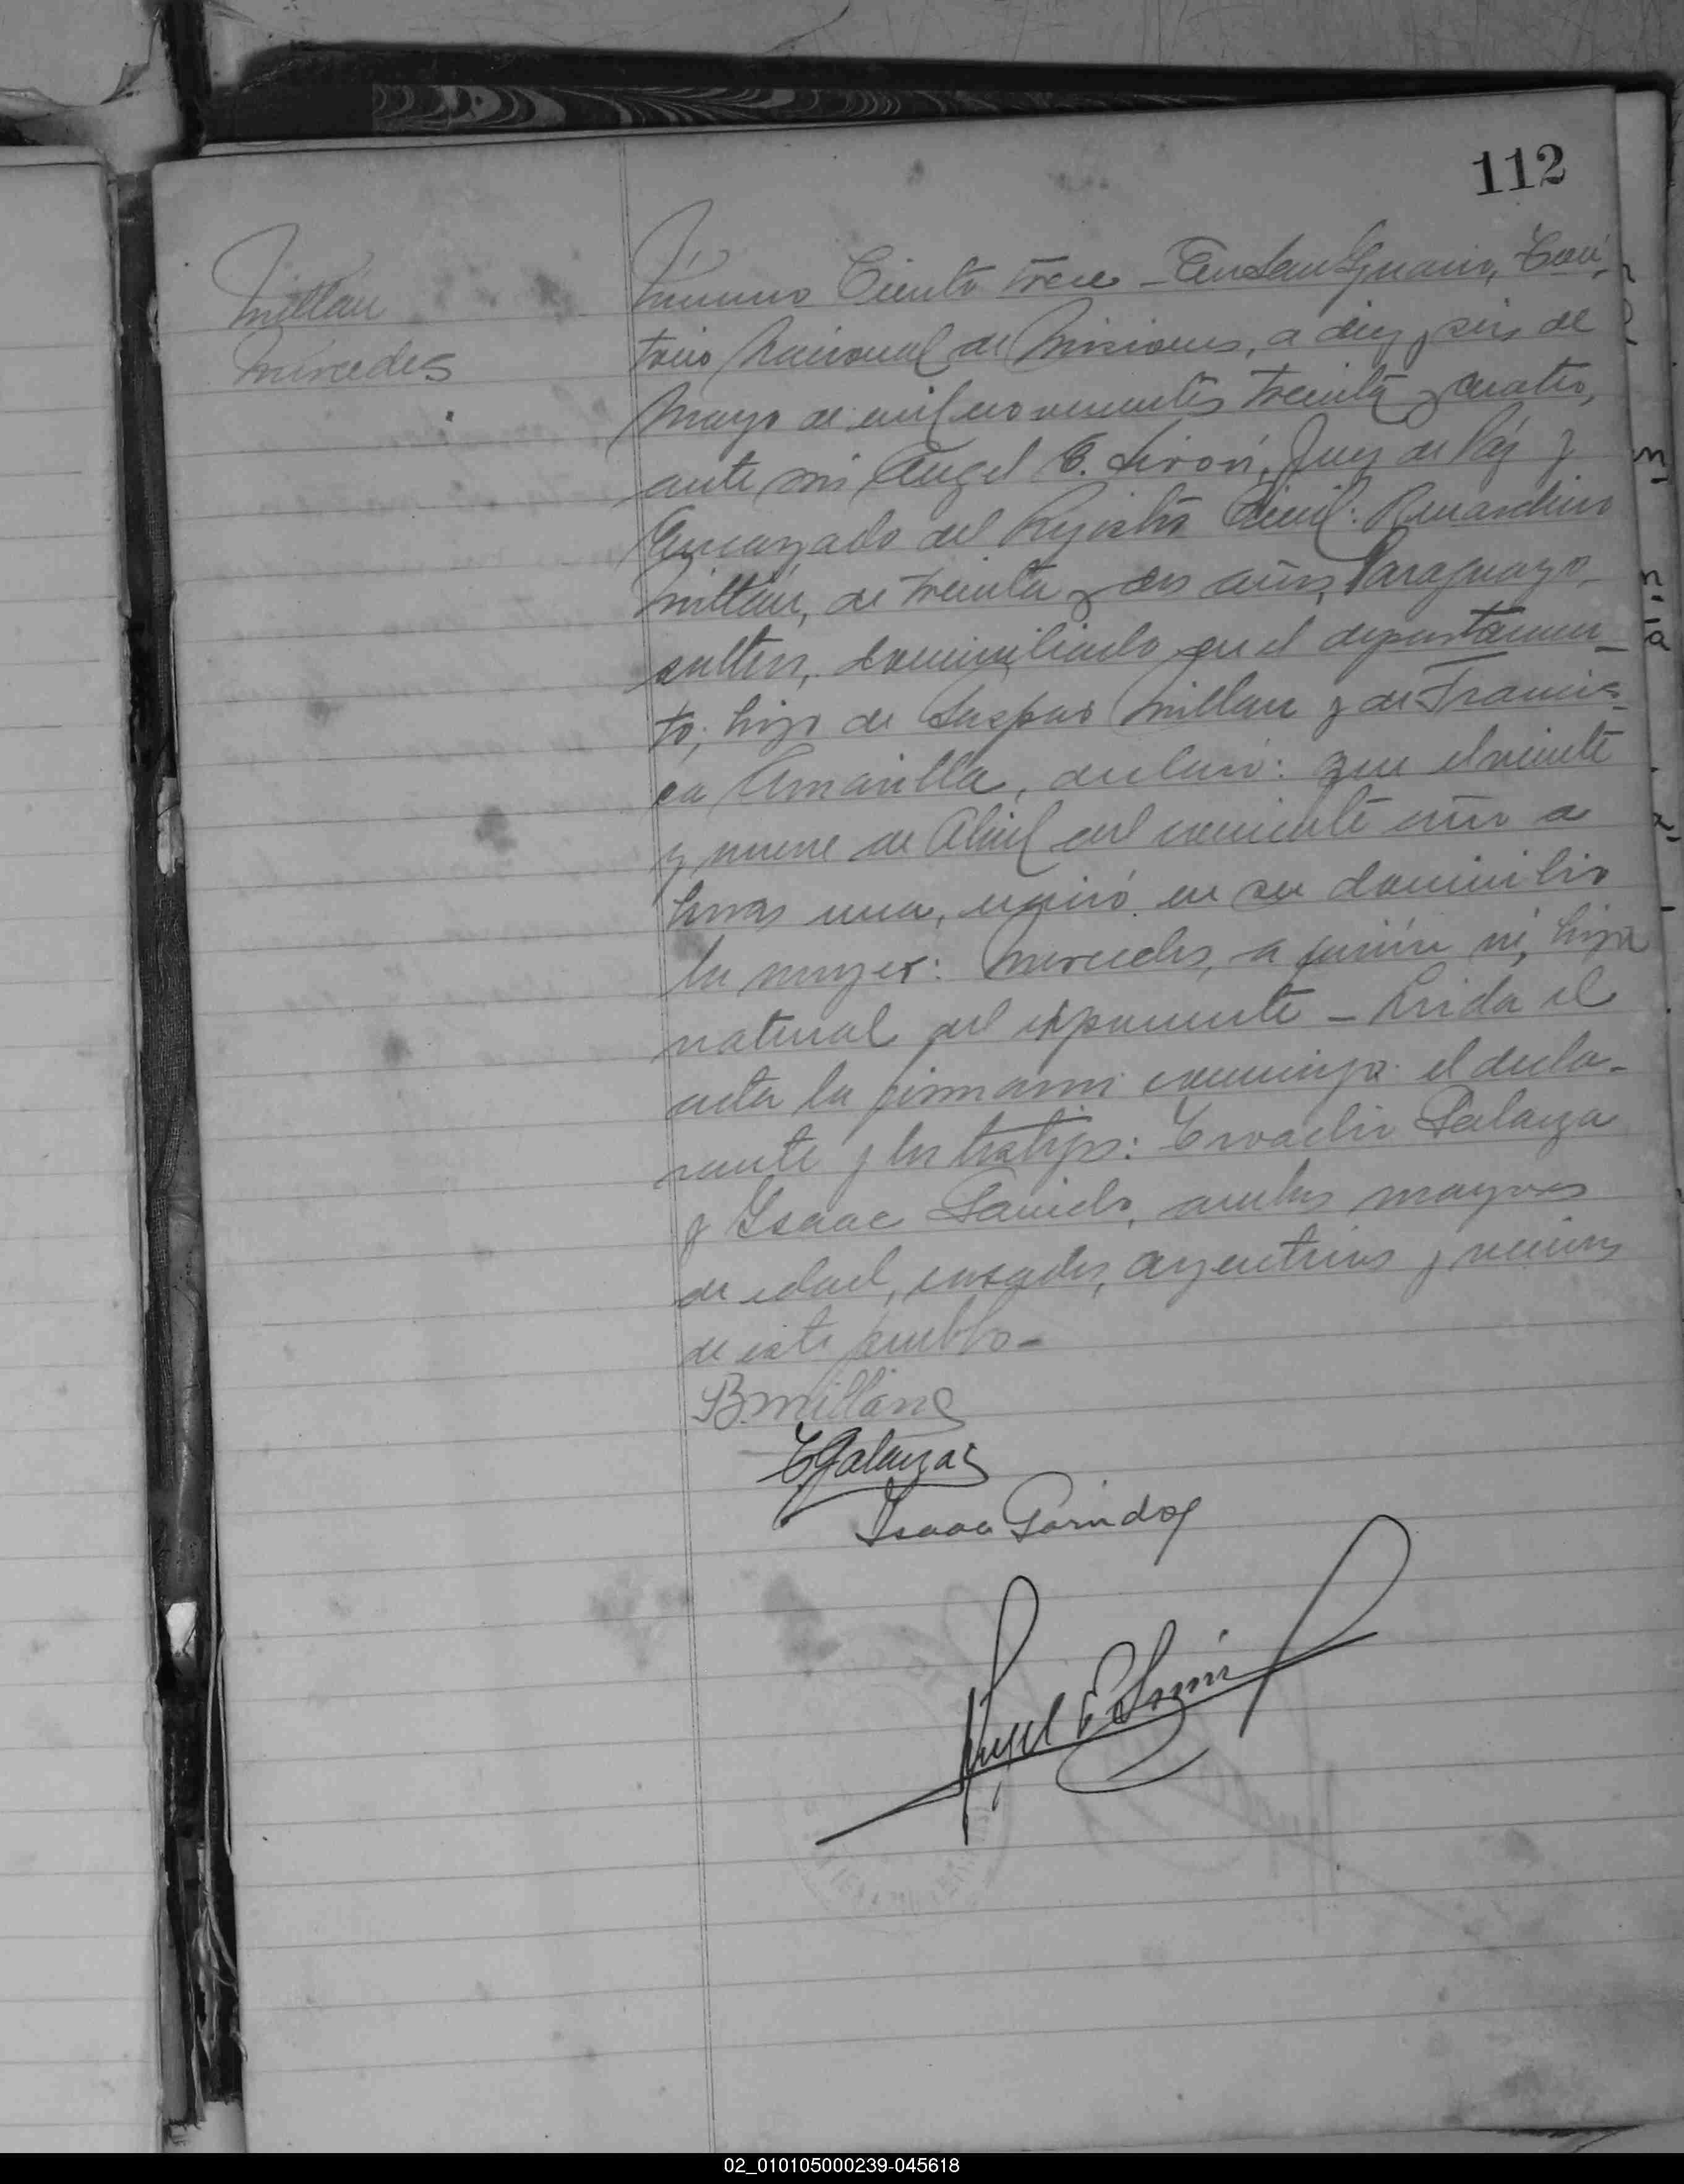 112
Millán
Mercedes
Número Ciento trece - En San Ignacio, Terri-
torio Nacional de Misiones, a diez y seis de
Mayo de mil novecientos treinta y cuatro,
ante mi Angel E. Sirón, Juez de Páz y
Encargado del Registro Civil: Bernardino
Millán, de treinta y dos años, Paraguayo,
soltero, domiciliado en el departamen-
to; hijo de Gaspar Millan y de Francis-
ca Amarilla, declaró: que el veinte
y nueve de Abril del corriente año a
horas una, nació en su domicilio
la mujer: Mercedes, a quién ví, hija
natural del exponente - Leida el
acta la firmaron conmigo el decla-
rante y los testigos: Galarza
y Isaac Garrido, ambos mayores
de edad, casados, argentinos y vecinos
de este pueblo -
B. Millán
Galarza
Isaac Garrido
Angel E Sirón
02_010105000239-045618